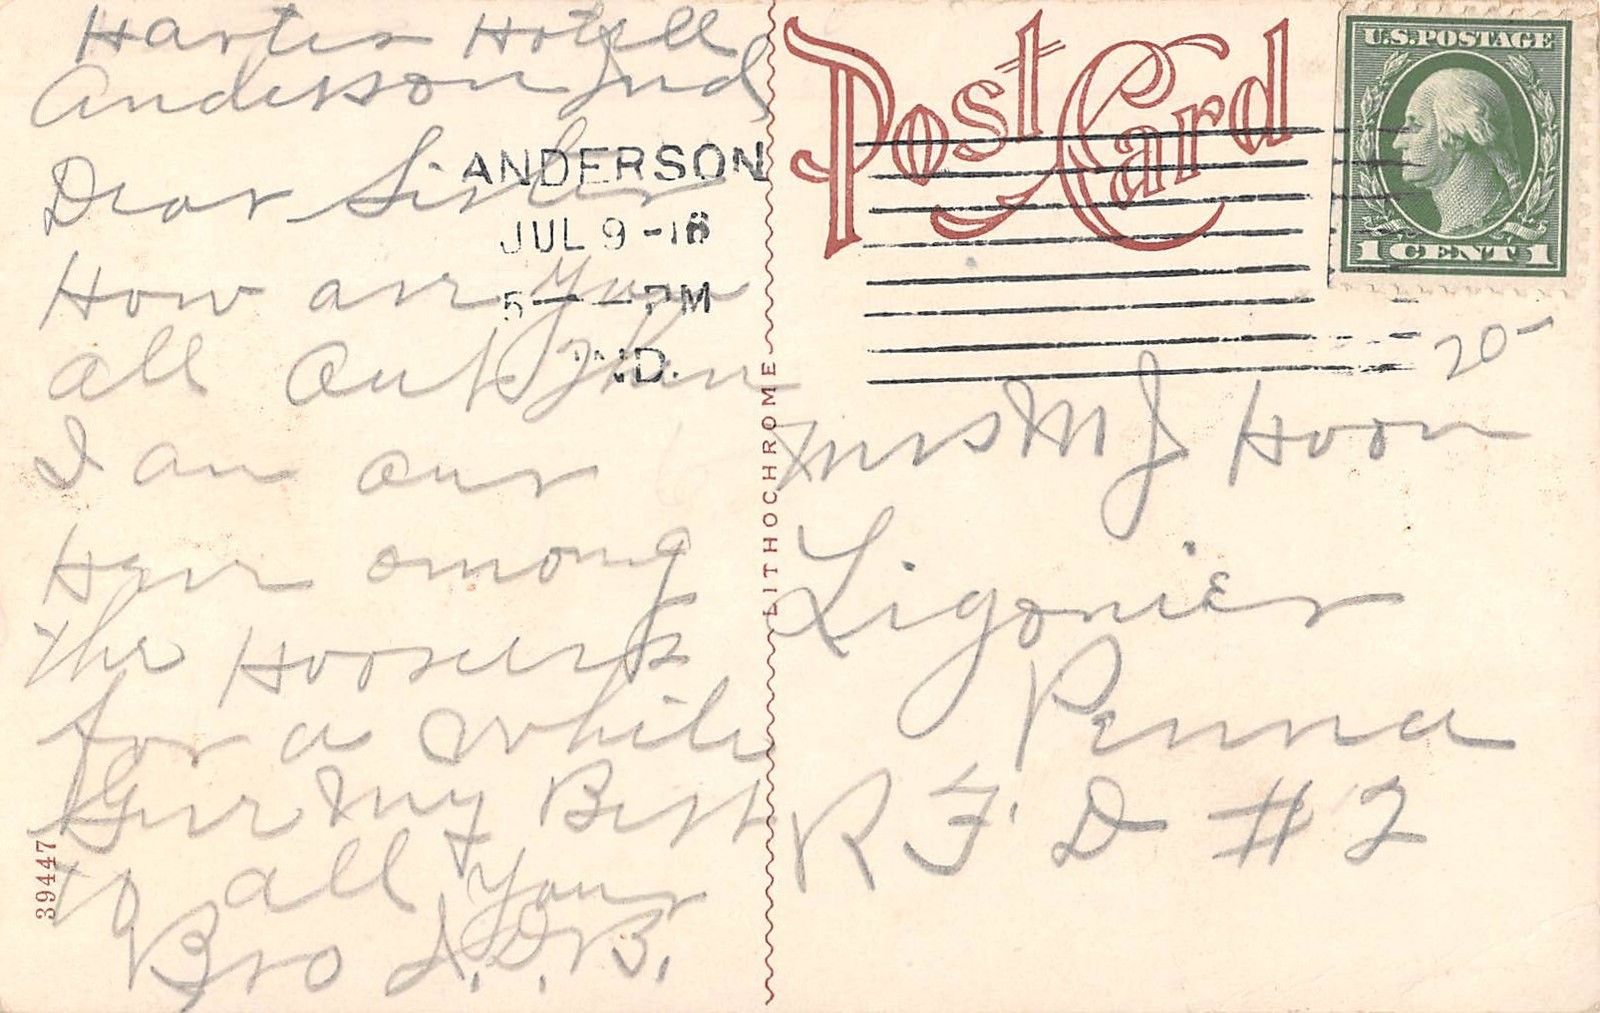 Hotell
Anderson Ind
Dear Sister
How are you
all out there
I am over
here among
the Hoosiers
for a while
Give my Best
to all your
Bro A.D.B.
39447
LITHOCHROME
Post Card
U.S.POSTAGE
1 CENT 1
ANDERSON
JUL 9
5 PM
IND.
20-
Mrs M J Hoon
Ligonier
Penna
R F D # 2